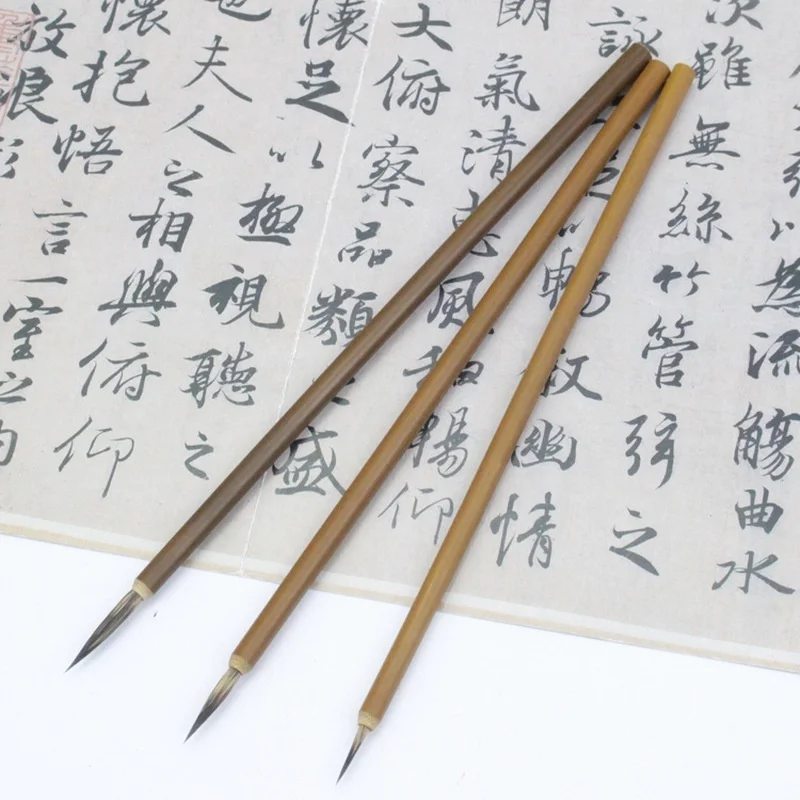 以為流觴曲水
次雖無絲竹管弦之
詠足以暢敘幽情
朗氣清惠風和暢仰
大俯察品類之盛
懷足以極視聽之
也夫人之相與俯仰
懷抱悟言一室之內
放浪形